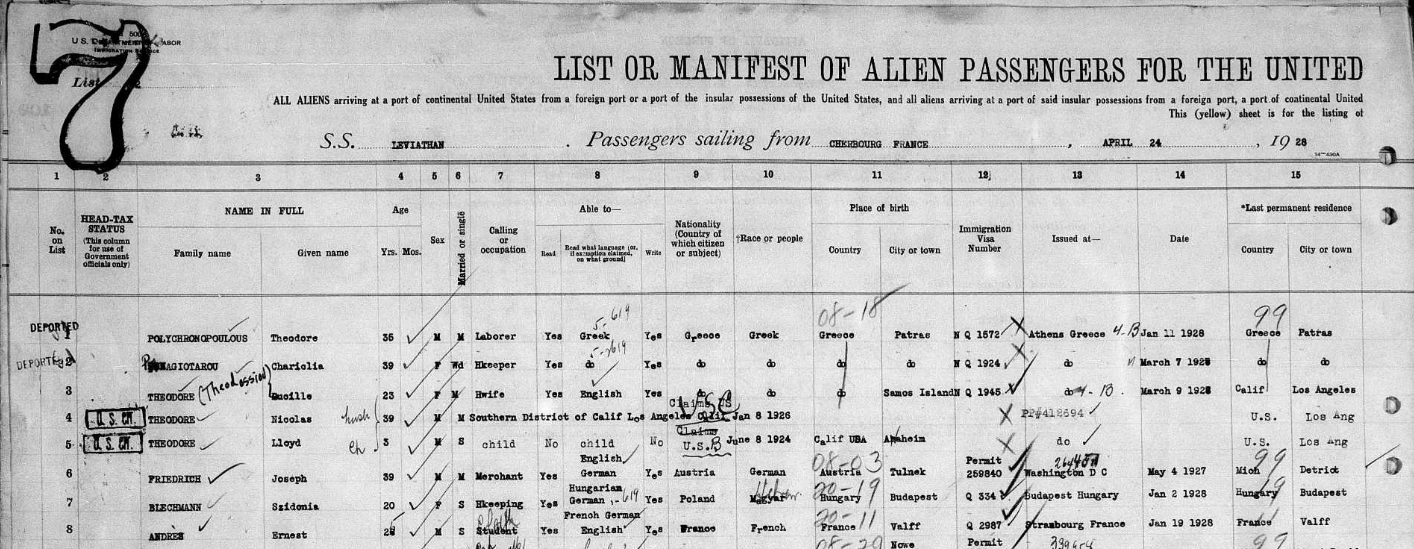 7
U.S. DEPARTMENT OF LABOR
IMMIGRATION SERVICE
List
LIST OR MANIFEST OF ALIEN PASSENGERS FOR THE UNITED
ALL ALIENS arriving at a port of continental United States from a foreign port or a port of the insular possessions of the United States, and all aliens arriving at a port of said insular possessions from a foreign port, a port of continental United
This (yellow) sheet is for the listing of
S.S. LEVIATHAN . Passengers sailing from CHERBOURG FRANCE , APRIL 24 , 19 28
1 2 3 4 5 6 7 8 9 10 11 12 13 14 15
No. on List HEAD-TAX STATUS (This column for use of Government officials only) NAME IN FULL Family name Given name Age Yrs. Mos. Sex Married or single Calling or occupation Able to— Read Read what language (or, if exemption claimed, on what ground) Write Nationality (Country of which citizen or subject) †Race or people Place of birth Country City or town Immigration Visa Number Issued at— Date *Last permanent residence Country City or town
5-619 08-18 99
DEPORTED 1 POLYCHRONOPOULOUS Theodore 35 M M Laborer Yes Greek Yes Greece Greek Greece Patras N Q 1572 Athens Greece 4-B Jan 11 1928 Greece Patras
DEPORTED 2 PANAGIOTAROU Chariolia 39 F Wd Hkeeper Yes do Yes do do do do N Q 1924 do March 7 1928 do do
3 THEODORE (Theodossiou) Lucille 23 F M Hwife Yes English Yes do do do Samos Island N Q 1945 do 4-B March 9 1928 Calif Los Angeles
4 U.S. CIT. THEODORE Nicolas husb 39 M M Southern District of Calif Los Angeles Calif Jan 8 1926 Claims US PP#412694 U.S. Los Ang
5 U.S. CIT. THEODORE Lloyd Ch 3 M S child No child No Claims U.S.B June 8 1924 Calif USA Anaheim do U.S. Los Ang
6 FRIEDRICH Joseph 39 M M Merchant Yes English German Yes Austria German 08-03 Austria Tulnek Permit 259840 Washington D C May 4 1927 99 Mich Detrict
7 BLECHMANN Szidonia 20 F S Hkeeping Yes Hungarian German -619 Yes Poland Magyar Hebrew 20-19 Hungary Budapest Q 334 Budapest Hungary Jan 2 1928 Hungary Budapest
8 ANDRES Ernest M S Student Yes French German English Yes France French 20-11 France Valff Q 2987 Strasbourg France Jan 19 1928 France Valff
08-29 Nowe Permit 99